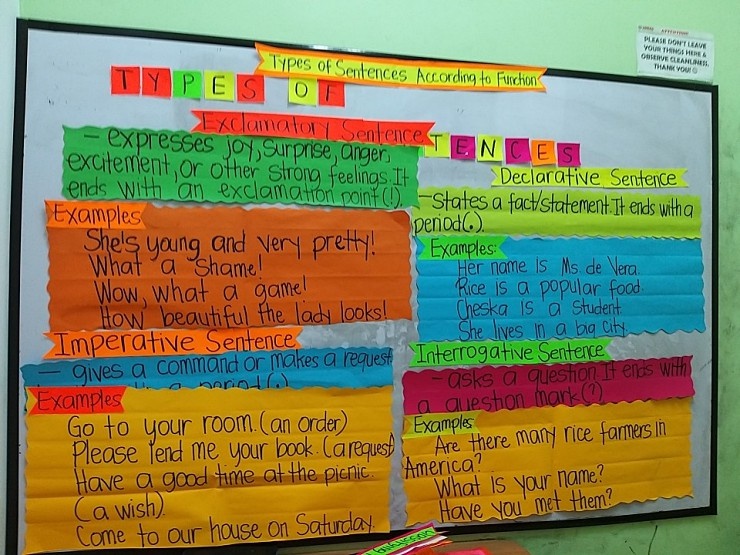 PLEASE DON'T LEAVE
YOUR THINGS HERE &
OBSERVE CLEANLINESS.
THANK YOU!
Types of Sentences According to Function
TYPES OF
TENCES
Exclamatory Sentence
- expresses joy, surprise, anger,
excitement, or other strong feelings. It
ends with an exclamation point(!).
Examples
She's young and very pretty!
What a shame!
Wow, what a game!
How beautiful the lady looks!
Declarative Sentence
-States a fact/statement. It ends with a
period(.).
Examples:
Her name is Ms. de Vera.
Rice is a popular food.
Cheska is a student.
She lives in a big city.
Imperative Sentence
- gives a command or makes a request.
a period(.)
Examples
Go to your room. (an order)
Please lend me your book. (a request)
Have a good time at the picnic.
(a wish)
Come to our house on Saturday.
Interrogative Sentence
-asks a question. It ends with
a question mark(?).
Examples
Are there many rice farmers in
America?
What is your name?
Have you met them?